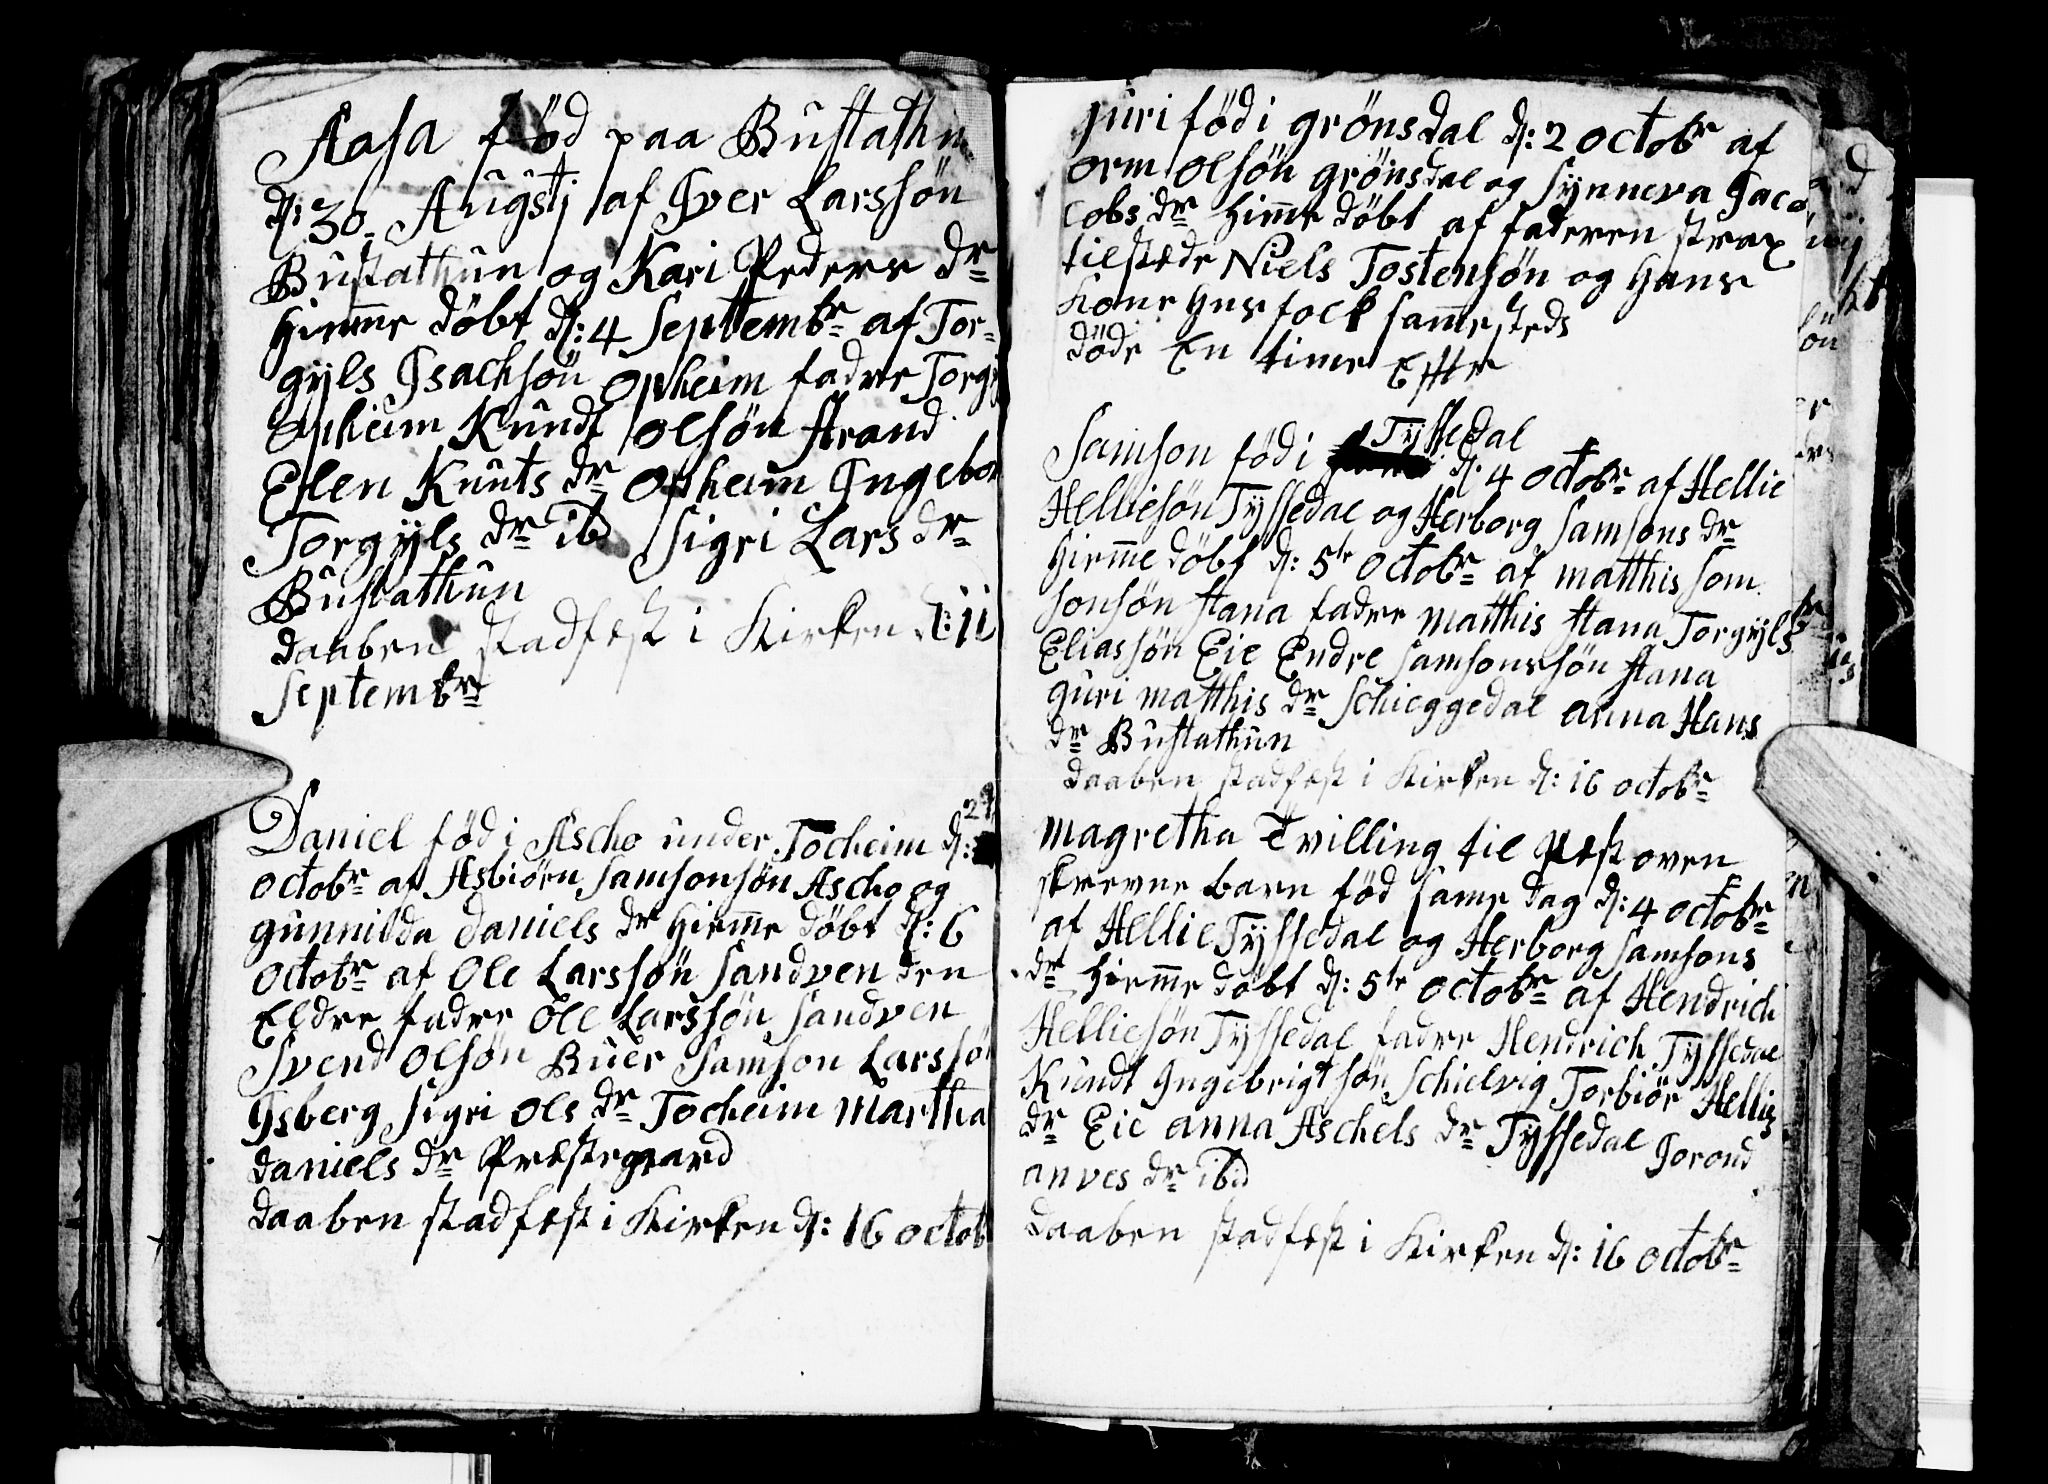 Aasa född paa Bustathun
d: 30. Augstj af Iver Larssön
Bustathun og Kari Peders dr
Hieme döbt d: 4 Septembr af Tor-
gÿls Isachsön opheim fadre Torgÿ
Opheim Kundt olsön strand
Elen Knuts dr Opheim Ingebor
Torgÿls dr ibd Sigri Lars dr
Bustathun
daaben stadfæst i Kirken d: ii
Septembr

Daniel föd i Ascho under Tocheim d: 29
octobr af Asbiörn Samsonsön Ascho og
gunnilda daniels dr Hieme döbt d: 6
octobr af Ole Larssön Sandven den
Eldre fadre Ole Larssön Sandven
Svend olsön Buer Samson Larssön
Isberg Sigri ols dr Tocheim Martha
daniels dr Præstegaard
daaben stadfæst i Kirken d: 16 octob

guri född i grönsdal d: 2 octobr af
orm olsön grönsdal og Synneva Jaco
cobs dr hime döbt af faderen strax
tilstæde Niels Tostensön og hans
Kone huusfolk sammesteds
döde En time Effter

Samson föd i Tyssedal d. 4 octobr af Hellie
Helliesön Tyssedal og Herborg Samsons dr
Hiemme döbt d: 5te octobr af matthis som
sonsön stana fadre Matthis stana Torgÿls
Eliassön Eie Endre Samsonssön stana
guri matthis dr Schieggedal anna Hans
dr Bustathun
daaben stadfæst i Kirken d: 16 octobr

magretha Tvilling til Næst oven
skrevne barn föd same dag d: 4 octobr
af Hellie Tyssedal og Herborg Samsons
dr hieme döbt d: 5te octobr af Hendrich
Helliesön Tyssedal fadre Hendrich Tyssedal
Kundt Ingebrigtsön Schielvig Torbiör Hellies
dr Eie anna Aschels dr Tyssedal Jorond
anves dr ibid
daaben stadfæst i Kirken d: 16 octobr